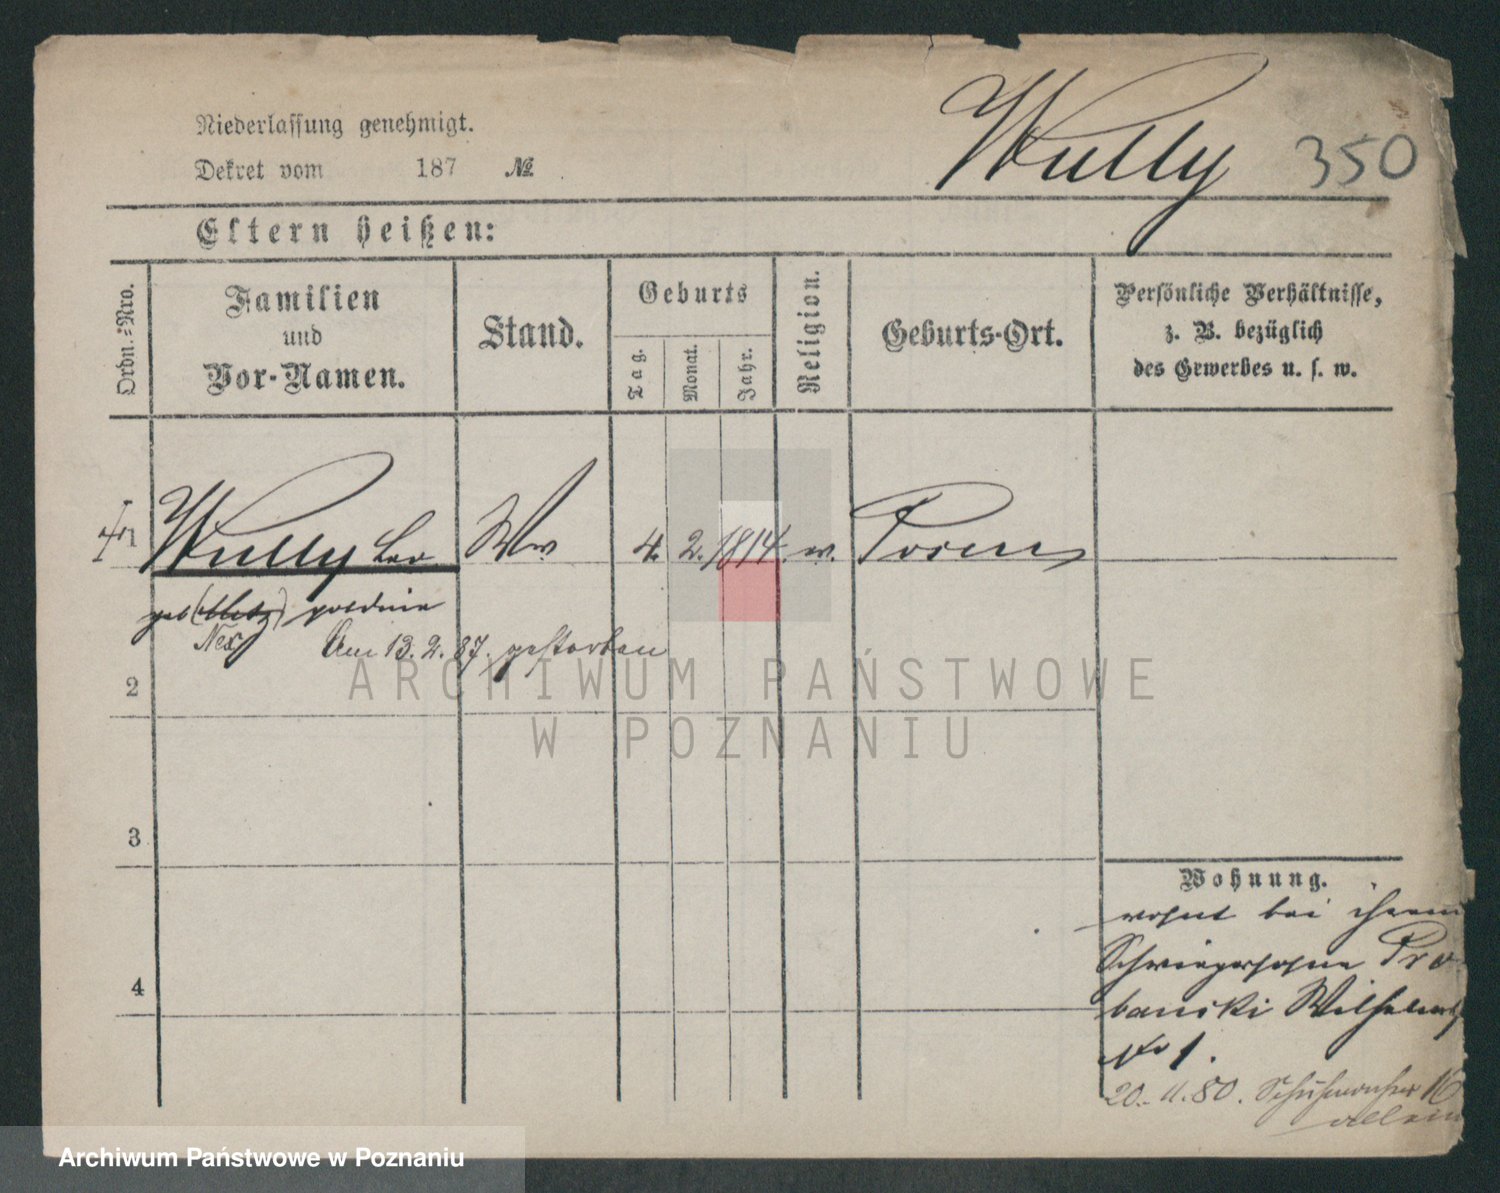 Niederlassung genehmigt.
Dekret vom 187 №
Wully 350
Eltern heißen:
Ordn.-Nro.
Familien
und
Vor-Namen.
Stand.
Geburts
Tag.
Monat.
Jahr.
Religion.
Geburts-Ort.
Persönliche Verhältnisse,
z. B. bezüglich
des Gewerbes u. s. w.
1 Wully Ww 4. 2. 1814. Posen
geb
Am 13. 2. 87. gestorben
2
3
4
Wohnung.
wohnt bei ihrem
Schwiegersohne Pro
banski Wilhelmpl
No 1.
20. 11. 80. Schuhmacherstr 16
allein
ARCHIWUM PAŃSTWOWE
W POZNANIU
Archiwum Państwowe w Poznaniu